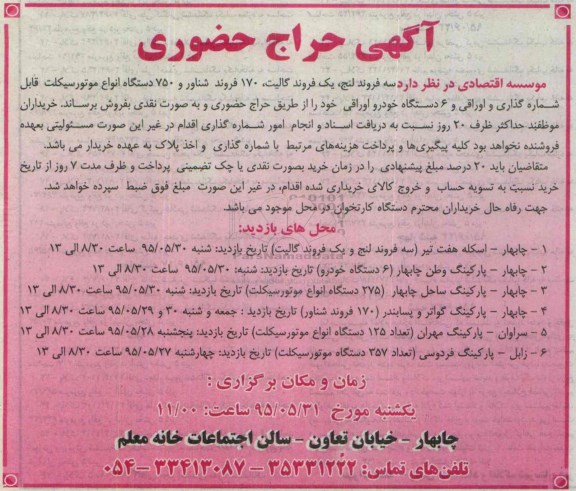 آگهی حراج حضوری
موسسه اقتصادی در نظر دارد سه فروند لنج، یک فروند گالیت، ۱۷۰ فروند شناور و ۷۵۰ دستگاه انواع موتورسیکلت قابل
شماره گذاری و اوراقی و ۶ دستگاه خودرو اوراقی خود را از طریق حراج حضوری و به صورت نقدی بفروش برساند. خریداران
موظفند حداکثر ظرف ۲۰ روز نسبت به دریافت اسناد و انجام امور شماره گذاری اقدام در غیر این صورت مسئولیتی بعهده
فروشنده نخواهد بود کلیه پیگیری‌ها و پرداخت هزینه‌های مرتبط با شماره گذاری و اخذ پلاک به عهده خریدار می باشد.
متقاضیان باید ۲۰ درصد مبلغ پیشنهادی را در زمان خرید بصورت نقدی یا چک تضمینی پرداخت و ظرف مدت ۷ روز از تاریخ
خرید نسبت به تسویه حساب و خروج کالای خریداری شده اقدام، در غیر این صورت مبلغ فوق ضبط سپرده خواهد شد.
جهت رفاه حال خریداران محترم دستگاه کارتخوان در محل موجود می باشد.
محل های بازدید:
۱ - چابهار - اسکله هفت تیر (سه فروند لنج و یک فروند گالیت) تاریخ بازدید: شنبه ۹۵/۰۵/۳۰ ساعت ۸/۳۰ الی ۱۳
۲ - چابهار - پارکینگ وطن چابهار (۶ دستگاه خودرو) تاریخ بازدید: شنبه: ۹۵/۰۵/۳۰ ساعت ۸/۳۰ الی ۱۳
۳ - چابهار - پارکینگ ساحل چابهار (۲۷۵ دستگاه انواع موتورسیکلت) تاریخ بازدید: شنبه ۹۵/۰۵/۳۰ ساعت ۸/۳۰ الی ۱۳
۴ - چابهار - پارکینگ گواتر و پسابندر (۱۷۰ فروند شناور) تاریخ بازدید : جمعه و شنبه ۳۰ و ۹۵/۰۵/۲۹ ساعت ۸/۳۰ الی ۱۳
۵ - سراوان - پارکینگ مهران (تعداد ۱۲۵ دستگاه انواع موتورسیکلت) تاریخ بازدید: پنجشنبه ۹۵/۰۵/۲۸ ساعت ۸/۳۰ الی ۱۳
۶ - زابل - پارکینگ فردوسی (تعداد ۳۵۷ دستگاه موتورسیکلت) تاریخ بازدید: چهارشنبه ۹۵/۰۵/۲۷ ساعت ۸/۳۰ الی ۱۳
زمان و مکان برگزاری :
یکشنبه مورخ ۹۵/۰۵/۳۱ ساعت: ۱۱/۰۰
چابهار - خیابان تعاون - سالن اجتماعات خانه معلم
تلفن‌های تماس: ۳۵۳۳۱۲۲۲ - ۳۳۴۱۳۰۸۷ - ۰۵۴